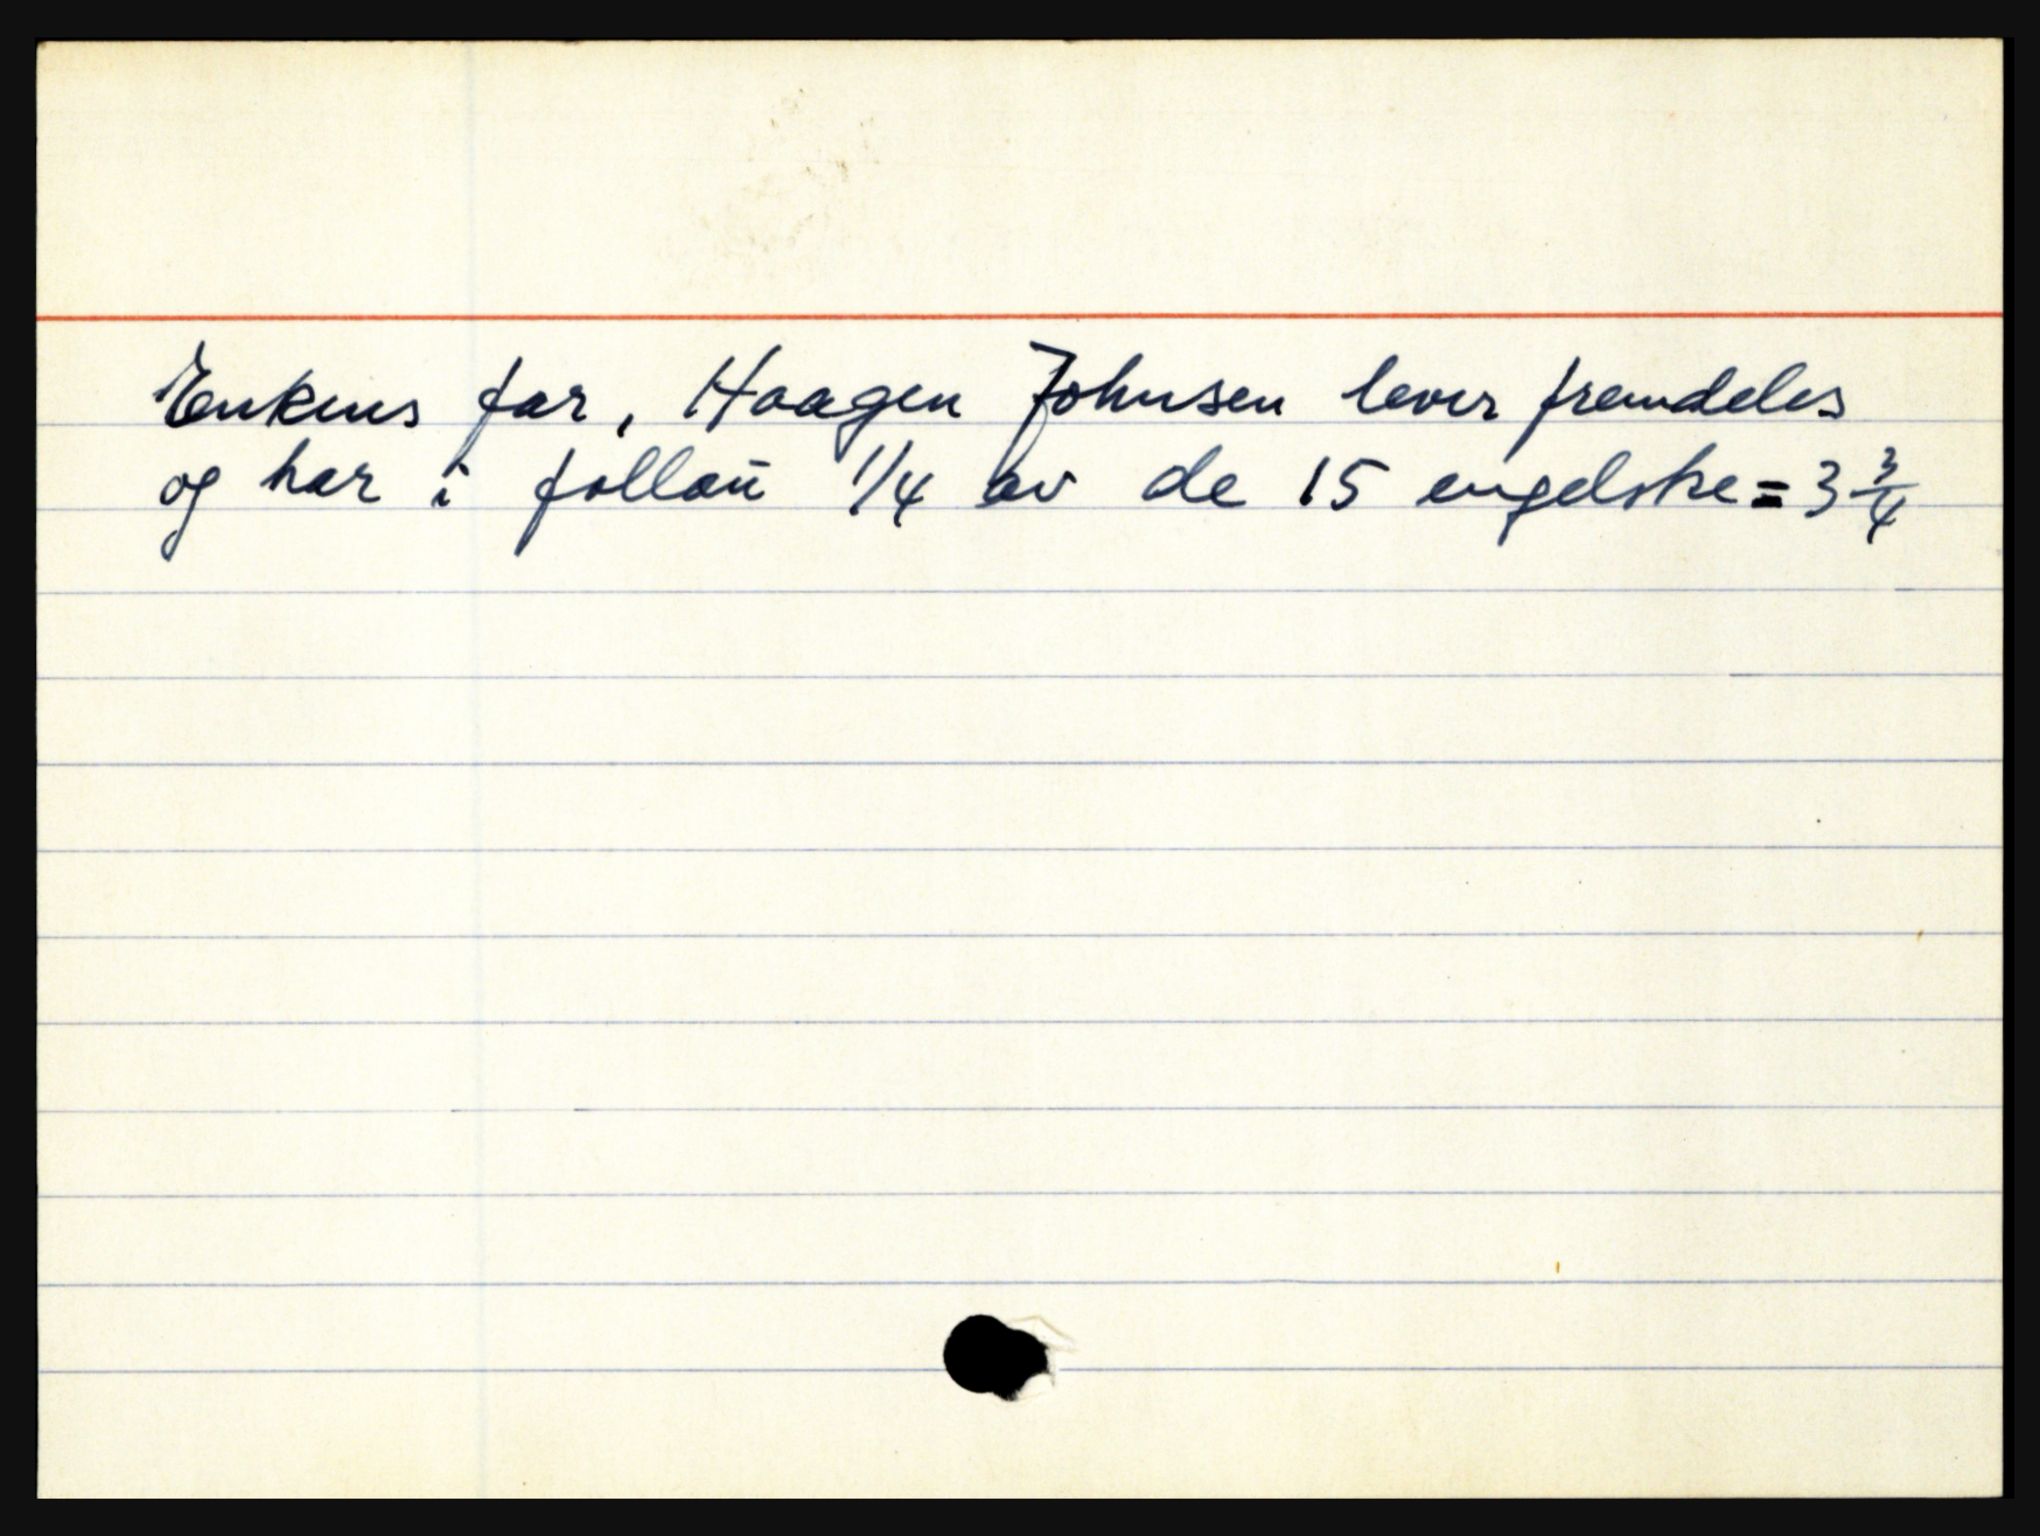 Enkens far, Haagen Johnsen lever fremdeles
og har i follau 1/4 av de 15 engelske = 3 3/4